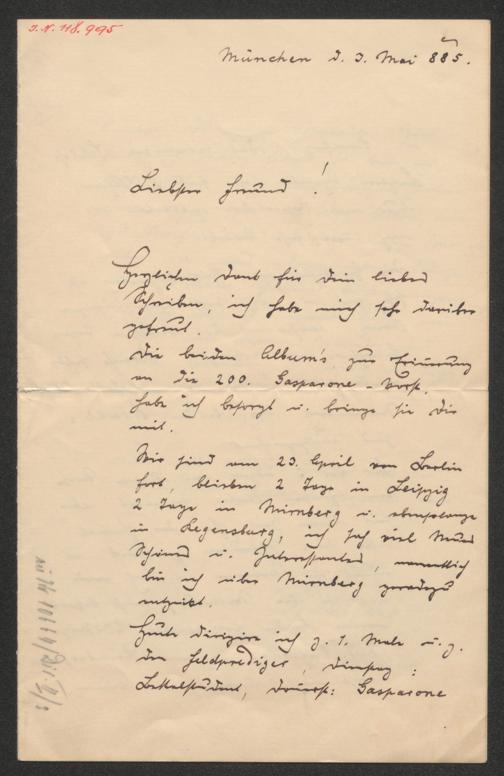 J.N. 118.995
München d. 3. Mai 885.
Liebster Freund!
Herzlichen Dank für Dein liebes
Schreiben, ich habe mich sehr darüber
gefreut.
Die beiden Album's zur Erinerung
an die 200. Gasparone-Vorst.
habe ich besorgt u. bringe sie Dir
mit.
Wir sind am 23. April von Berlin
fort, blieben 2 Tage in Leipzig
2 Tage in Nürnberg u. ebensolange
in Regensburg, ich sah viel Neues
Schönes u. Interessantes, namentlich
bin ich über Nürnberg geradezu
entzückt.
Heute dirigire ich z. 1. Male u. z.
den Feldprediger, Dinstag:
Bettelstudent, Donerst: Gasparone